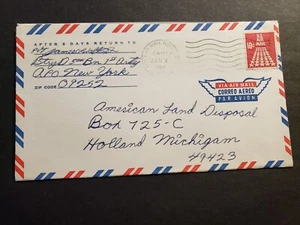 AFTER 5 DAYS RETURN TO
Btry D 5th Bn 1st Arty
APO New York
ZIP CODE 09252
10c
VIA AIR MAIL
CORREO AEREO
PAR AVION
American Land Disposal
Box 725-C
Holland Michigan
49423